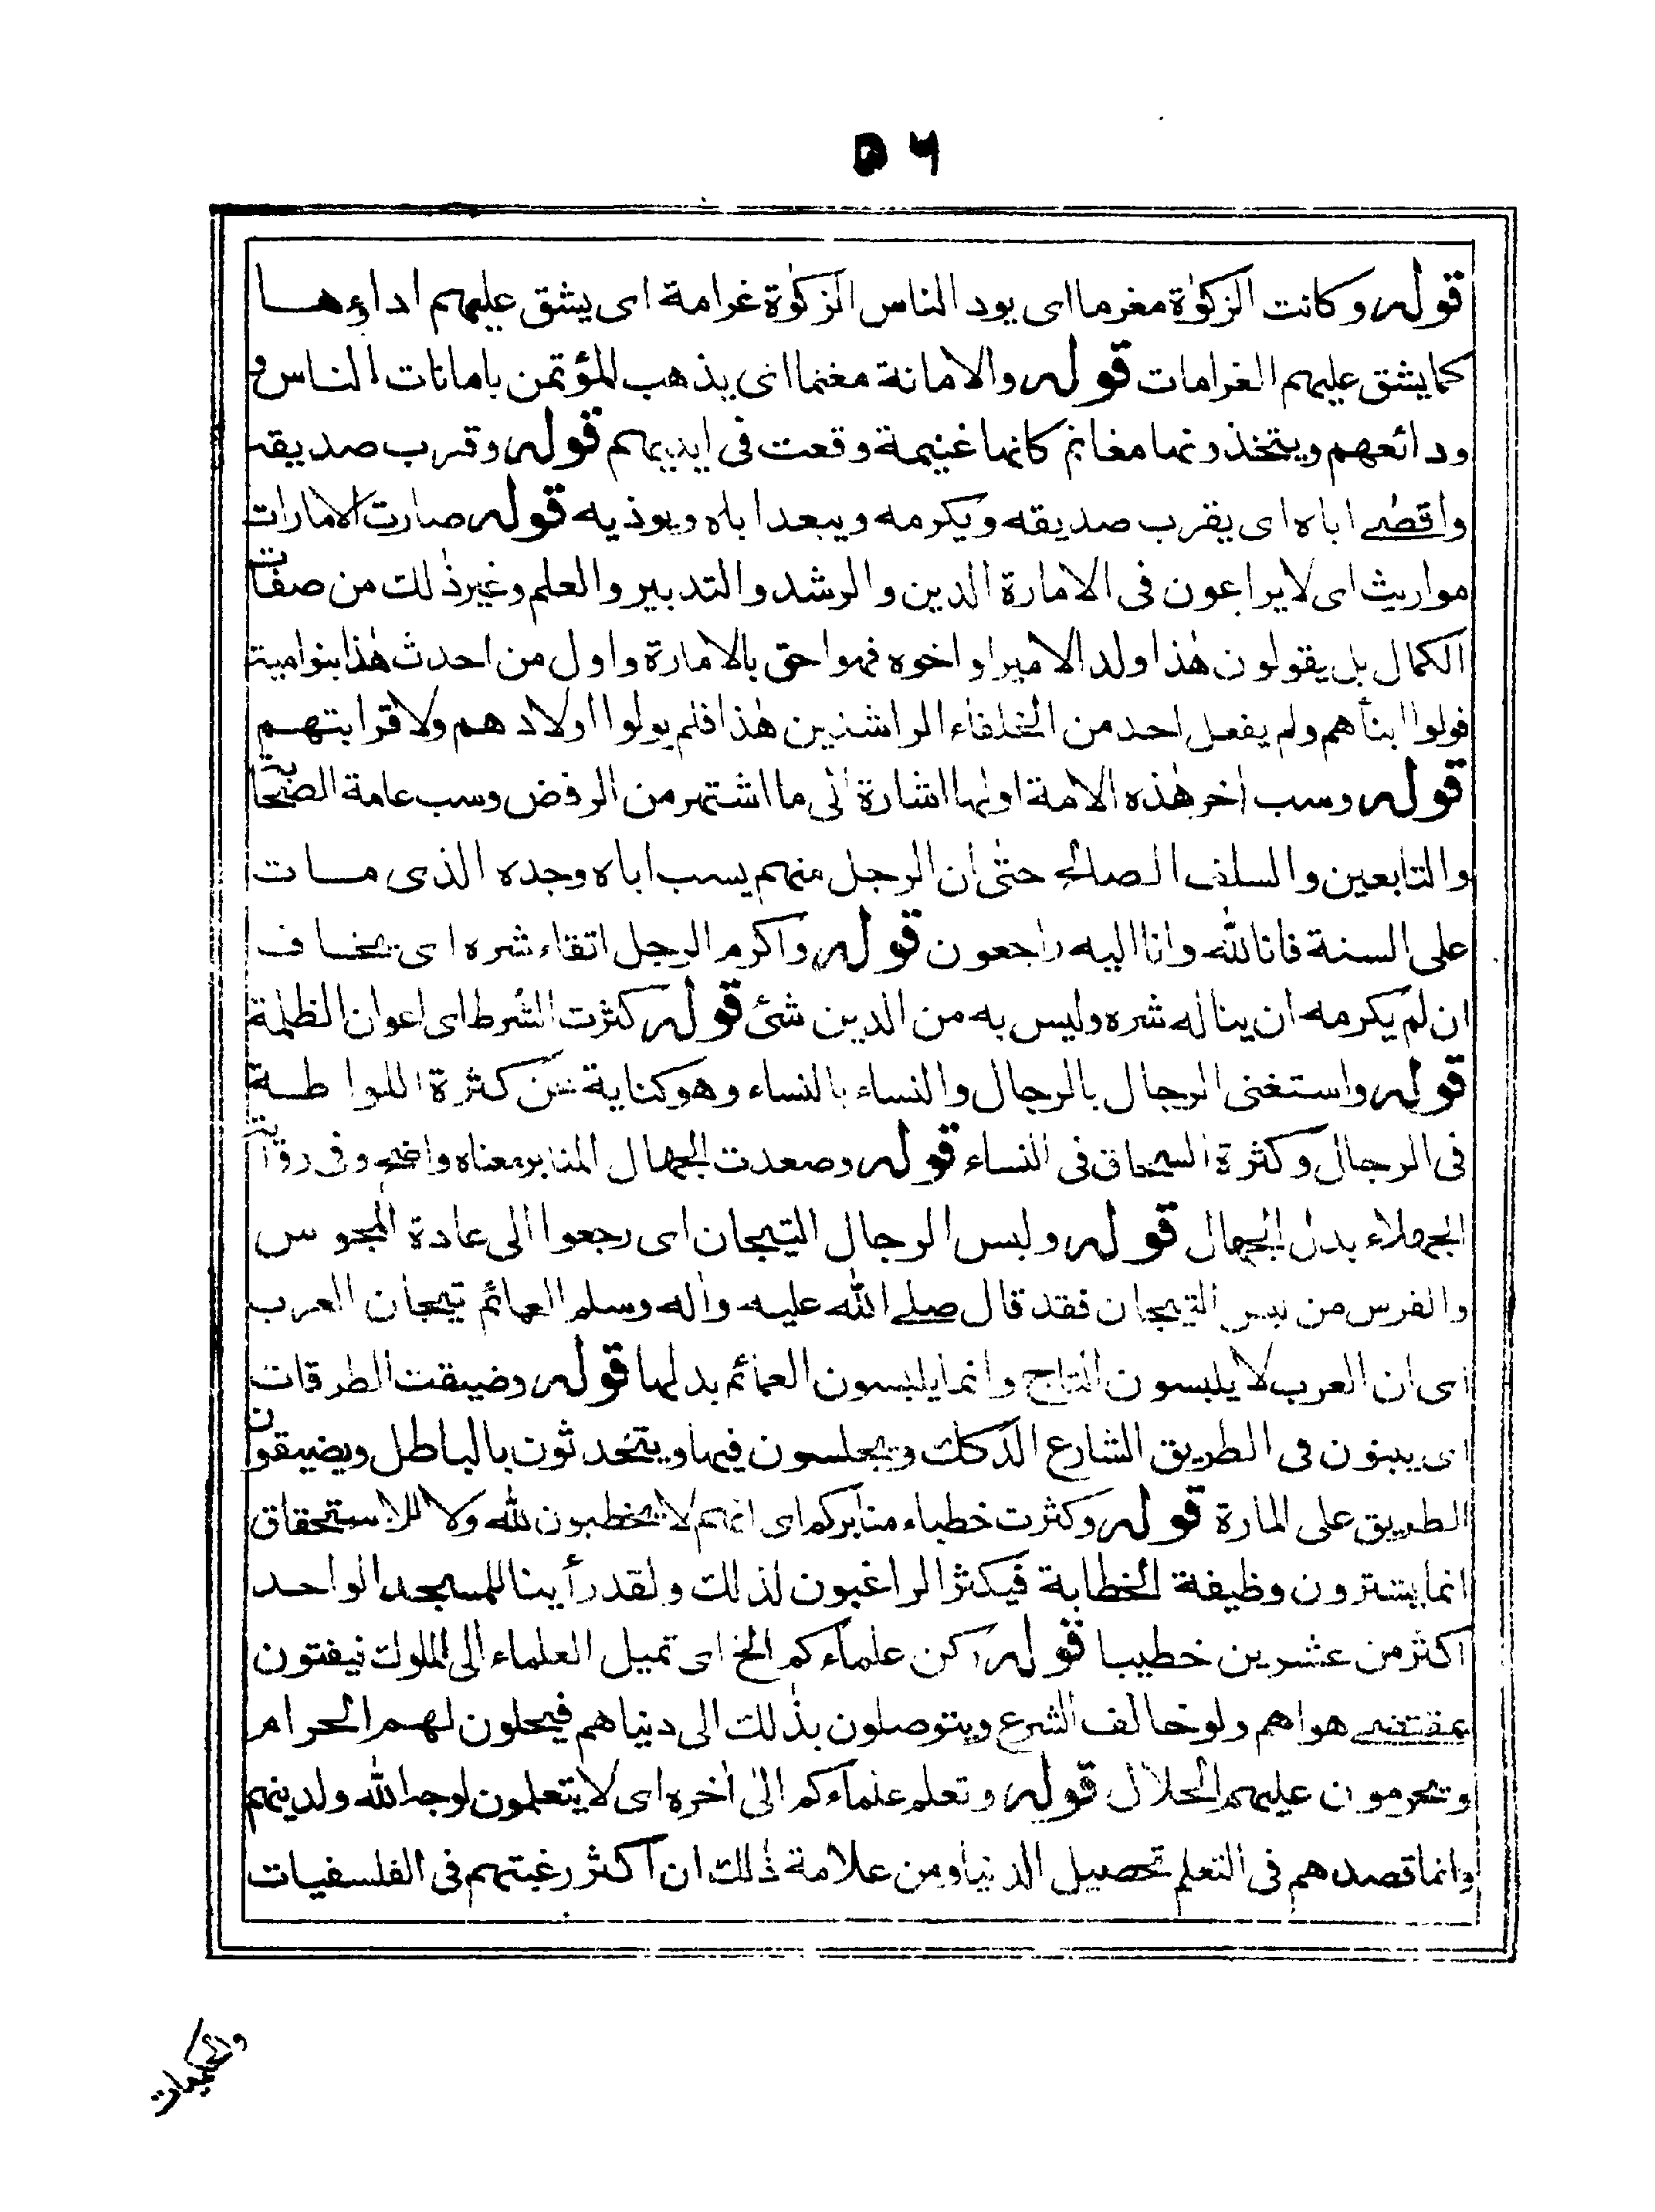 ٥٦
قوله وكانت الزكوٰة مغرما اى يود الناس الزكوٰة غرامة اى يشق عليهم اداءها
كما يشق عليهم الغرامات قوله والامانة مغنما اى يذهب المؤتمن بامانات الناس و
ودائعهم ويتخذونها مغانم كانها غنيمة وقعت فى ايديهم قوله وقرب صديقه
واقصے اباه اى يقرب صديقه ويكرمه ويبعد اباه ويوذيه قوله صارت الامارات
مواريث اى لا يراعون فى الامارة الدين والرشد والتدبير والعلم وغير ذٰلك من صفات
الكمال بل يقولون هٰذا ولد الامير او اخوه فهو احق بالامارة واول من احدث هٰذا بنوامية
فولوا ابنأهم ولم يفعل احد من الخلفاء الراشدين هٰذا فلم يولوا اولادهم ولا قرابتهم
قوله وسب اٰخر هٰذه الامة اولها اشارة الى ما اشتهر من الرفض وسب عامة الصحابة
والتابعين والسلف الصالح حتى ان الرجل منهم يسب اباه وجده الذى مات
على السنة فانا لله وانا اليه راجعون قوله واكرم الرجل اتقاء شره اى يخاف
ان لم يكرمه ان يناله شره وليس به من الدين شئ قوله كثرت الشرط اى اعوان الظلمة
قوله واستغنى الرجال بالرجال والنساء بالنساء وهو كناية عن كثرة اللواطة
فى الرجال وكثرة السحاق فى النساء قوله وصعدت الجهال المنابر معناه واضح وفى رواية
الجهلاء بدل الجهال قوله ولبس الرجال التيجان اى رجعوا الى عادة المجوس
والفرس من لبس التيجان فقد قال صلے الله عليه واٰله وسلم العمائم تيجان العرب
اى ان العرب لا يلبسون التاج وانما يلبسون العمائم بدلها قوله وضيقت الطرقات
اى يبنون فى الطريق الشارع الدكك ويجلسون فيها ويتحدثون بالباطل ويضيقون
الطريق على المارة قوله وكثرت خطباء منابركم اى انهم لا يخطبون لله ولا للاستحقاق
انما يشترون وظيفة الخطابة فيكثر الراغبون لذلك ولقد رأينا للمسجد الواحد
اكثر من عشرين خطيبا قوله ركن علماءكم الخ اى تميل العلماء الى الملوك فيفتون
بمقتضے هواهم ولو خالف الشرع ويتوصلون بذٰلك الى دنياهم فيحلون لهم الحرام
ويحرمون عليهم الحلال قوله وتعلم علماءكم الى اٰخره اى لا يتعلمون لوجه الله ولدينهم
وانما قصدهم فى التعلم تحصيل الدنيا ومن علامة ذٰلك ان اكثر رغبتهم فى الفلسفيات